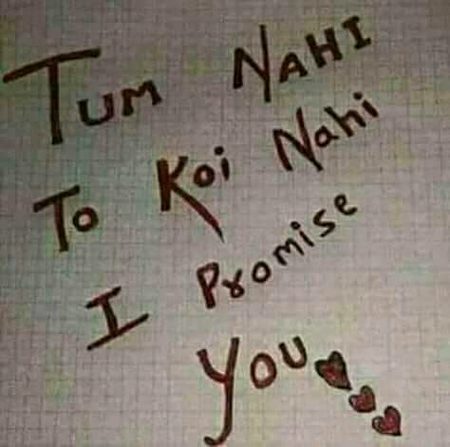 TUM NAHI
To Koi Nahi
I Promise
you